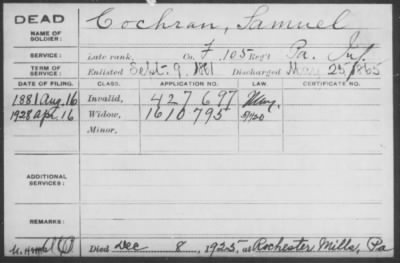 DEAD
NAME OF SOLDIER:
Cochran, Samuel
SERVICE:
Late rank, Co. F. 105 Reg't Pa. Inf.
TERM OF SERVICE:
Enlisted Sept. 9, 1861 Discharged May 25, 1865
DATE OF FILING. CLASS. APPLICATION NO. LAW. CERTIFICATE NO.
1881 Aug. 16 Invalid, 427697
1928 Apr. 16 Widow, 1610795 5/1/20
Minor.
ADDITIONAL SERVICES:
REMARKS:
Died Dec 8, 1925, at Rochester Mills, Pa